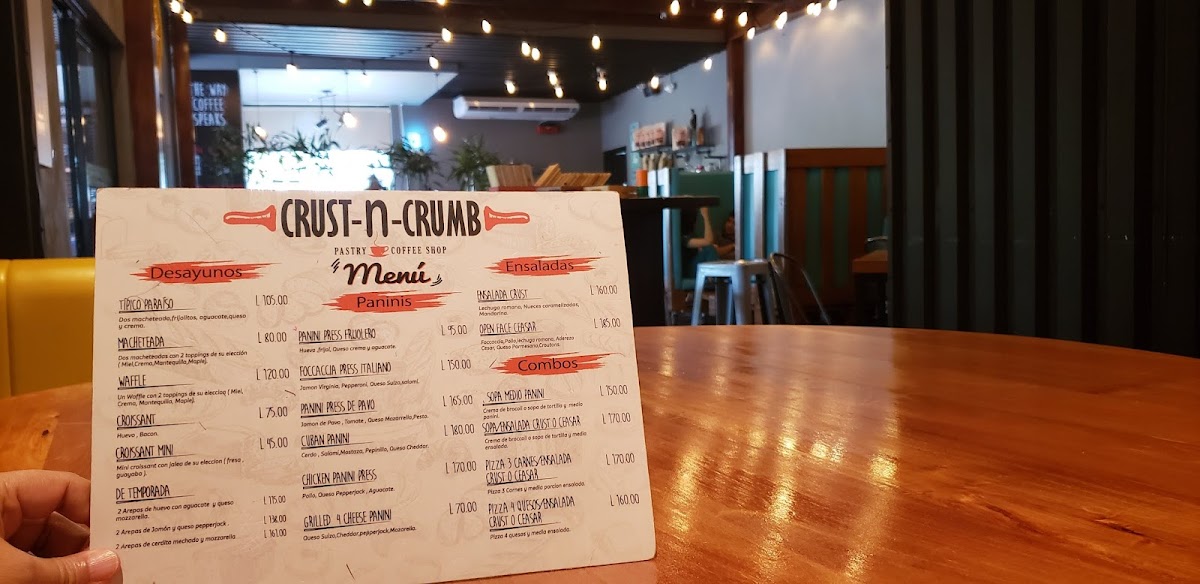 THE WAY
COFFEE
SPEAKS
CRUST-n-CRUMB
PASTRY COFFEE SHOP
"Menú"
Desayunos
TÍPICO PARAÍSO L 105.00
Dos macheteada,frijolitos, aguacate,queso
y crema.
MACHETEADA L 80.00
Dos macheteadas con 2 toppings de su elección
( Miel,Crema,Mantequilla,Maple).
WAFFLE L 120.00
Un Waffle con 2 toppings de su eleccioq ( Miel,
Crema, Mantequilla, Maple).
CROISSANT L 75.00
Huevo , Bacon.
CROISSANT MINI L 45.00
Mini croissant con jalea de su eleccion ( fresa ,
guayaba ).
DE TEMPORADA
2 Arepas de huevo con aguacate y queso
mozzarella. L 115.00
2 Arepas de Jamón y queso pepperjack. L 138.00
2 Arepas de cerdito mechado y mozzarella. L 161.00
Paninis
PANINI PRESS FRIJOLERO L 95.00
Hueva ,frijol, Queso crema y aguacate.
FOCCACCIA PRESS ITALIANO L 150.00
Jamon Virginia, Pepperoni, Queso Suizo,salami.
PANINI PRESS DE PAVO L 165.00
Jamon de Pavo , Tomate , Queso Mozzarella,Pesto.
CUBAN PANINI L 180.00
Cerdo , Salami,Mostaza, Pepinillo, Queso Cheddar.
CHICKEN PANINI PRESS L 170.00
Pollo, Queso Pepperjack , Aguacate.
GRILLED 4 CHEESE PANINI L 70.00
Queso Suizo,Cheddar,pepperjack,Mozarella.
Ensaladas
ENSALADA CRUST L 160.00
Lechuga romana, Nueces caramelizadas,
Mandarina.
OPEN FACE CEASAR L 185.00
Foccaccia,Pollo,lechuga romana, Aderezo
Cesar, Queso Parmesano,Croutons.
Combos
SOPA MEDIO PANINI L 150.00
Crema de brocoli o sopa de tortilla y medio
panini.
SOPA/ENSALADA CRUST O CEASAR L 170.00
Crema de brocoli o sopa de tortilla y media
ensalada.
PIZZA 3 CARNES/ENSALADA L 170.00
CRUST O CEASAR
Pizza 3 Carnes y media porcion ensalada.
PIZZA 4 QUESOS/ENSALADA L 160.00
CRUST O CEASAR
Pizza 4 quesos y media ensalada.